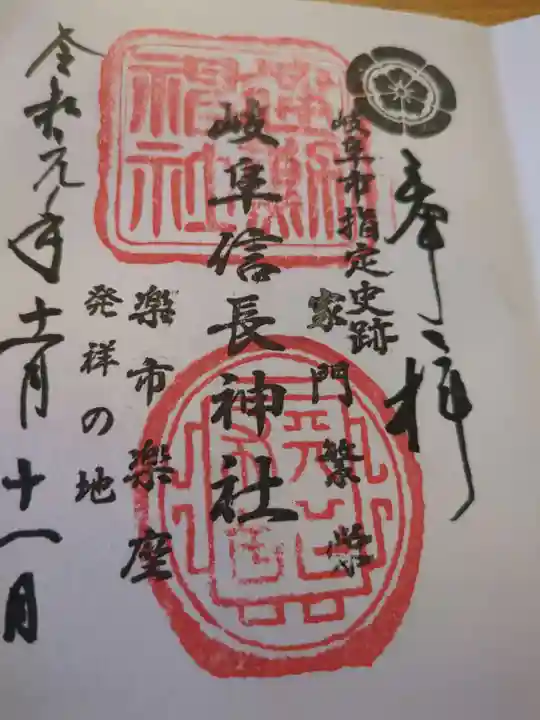 奉拝
岐阜市指定史跡
家門繁栄
岐阜信長神社
楽市楽座
発祥の地
令和元年十一月十八日